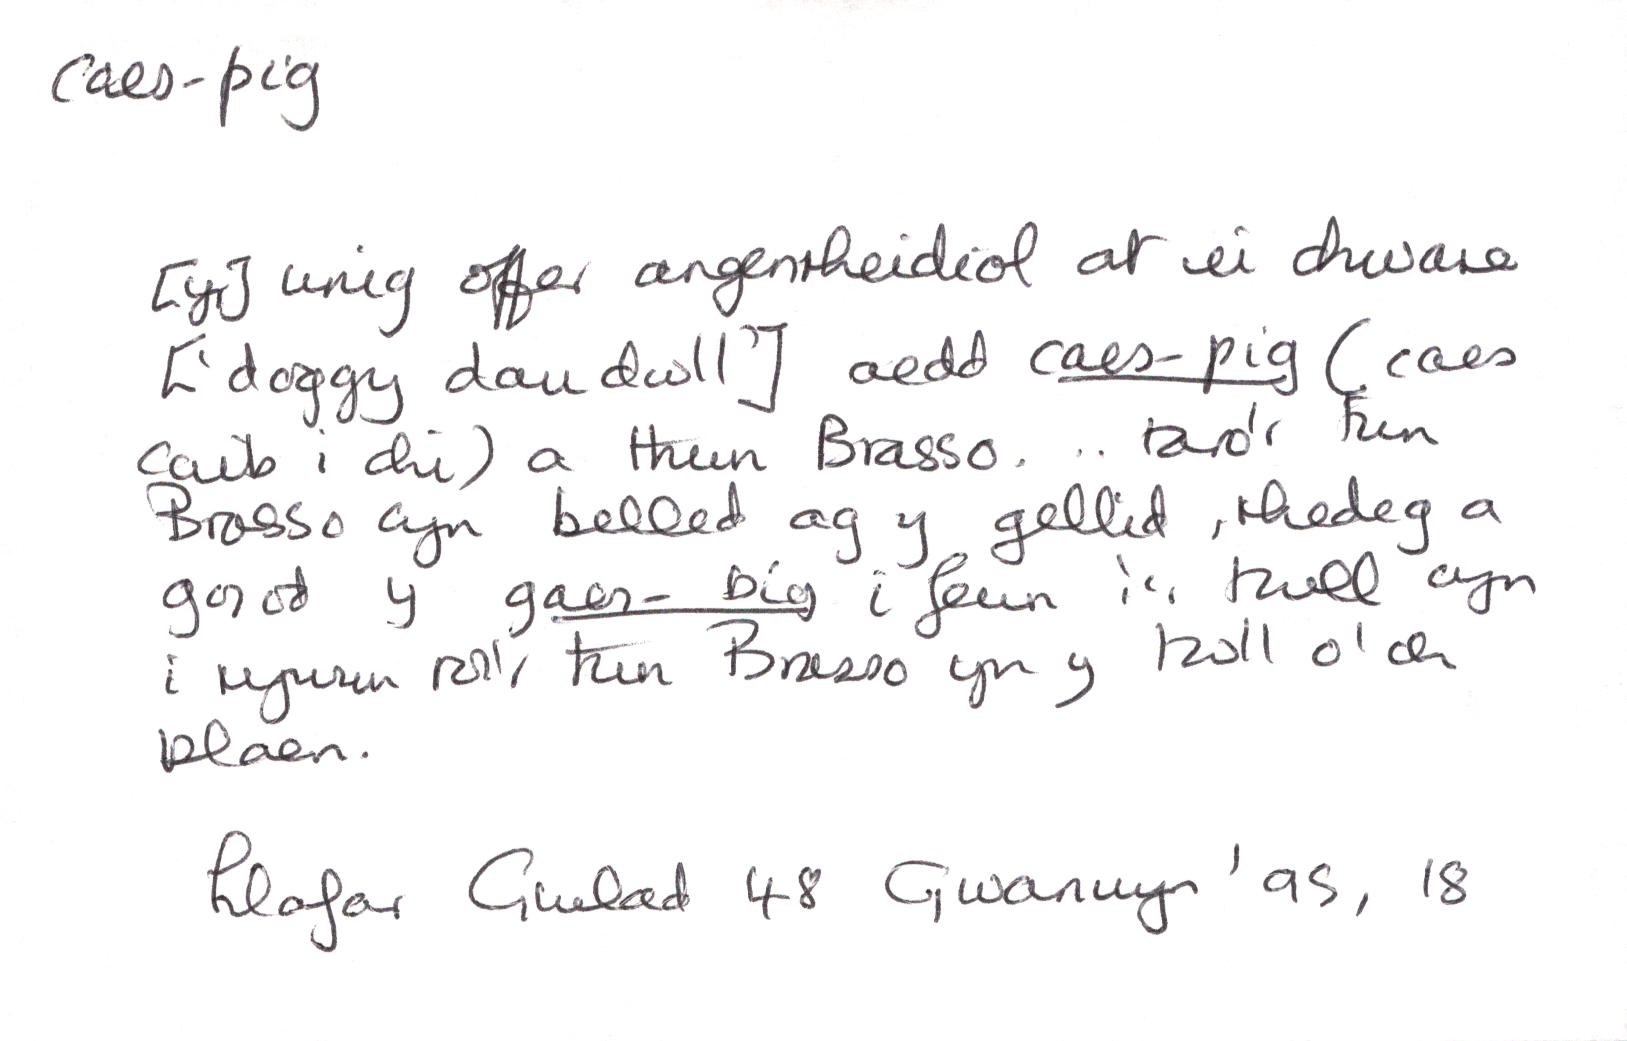 caes-pig
[yr] unig offer angenrheidiol at ei chware
['doggy dau dwll'] oedd caes-pig (caes
caib i chi) a thun Brasso. .. taro'r tun
Brasso cyn belled ag y gellid, rhedeg a
gosod y gaes-big i fewn i'r twll cyn
i rywun roi'r tun Brasso yn y twll o'ch
blaen.
Llafar Gwlad 48 Gwanwyn '95, 18